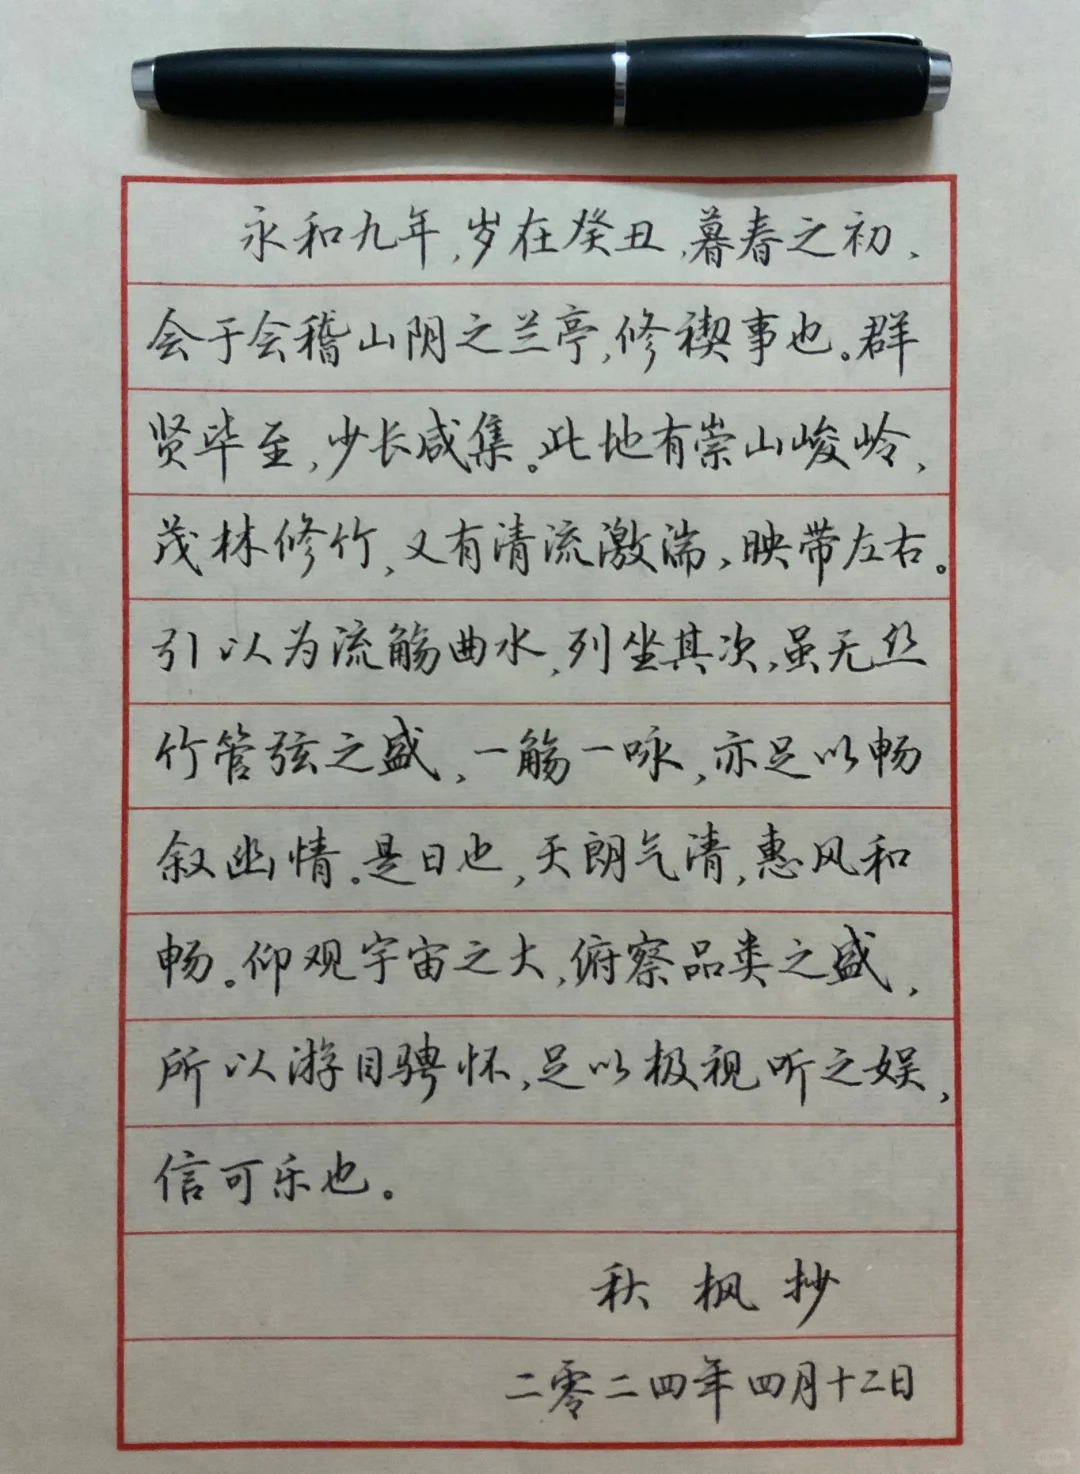 永和九年,岁在癸丑,暮春之初,
会于会稽山阴之兰亭,修禊事也。群
贤毕至,少长咸集。此地有崇山峻岭,
茂林修竹,又有清流激湍,映带左右。
引以为流觞曲水,列坐其次,虽无丝
竹管弦之盛,一觞一咏,亦足以畅
叙幽情。是日也,天朗气清,惠风和
畅。仰观宇宙之大,俯察品类之盛,
所以游目骋怀,足以极视听之娱,
信可乐也。
秋枫抄
二零二四年四月十二日